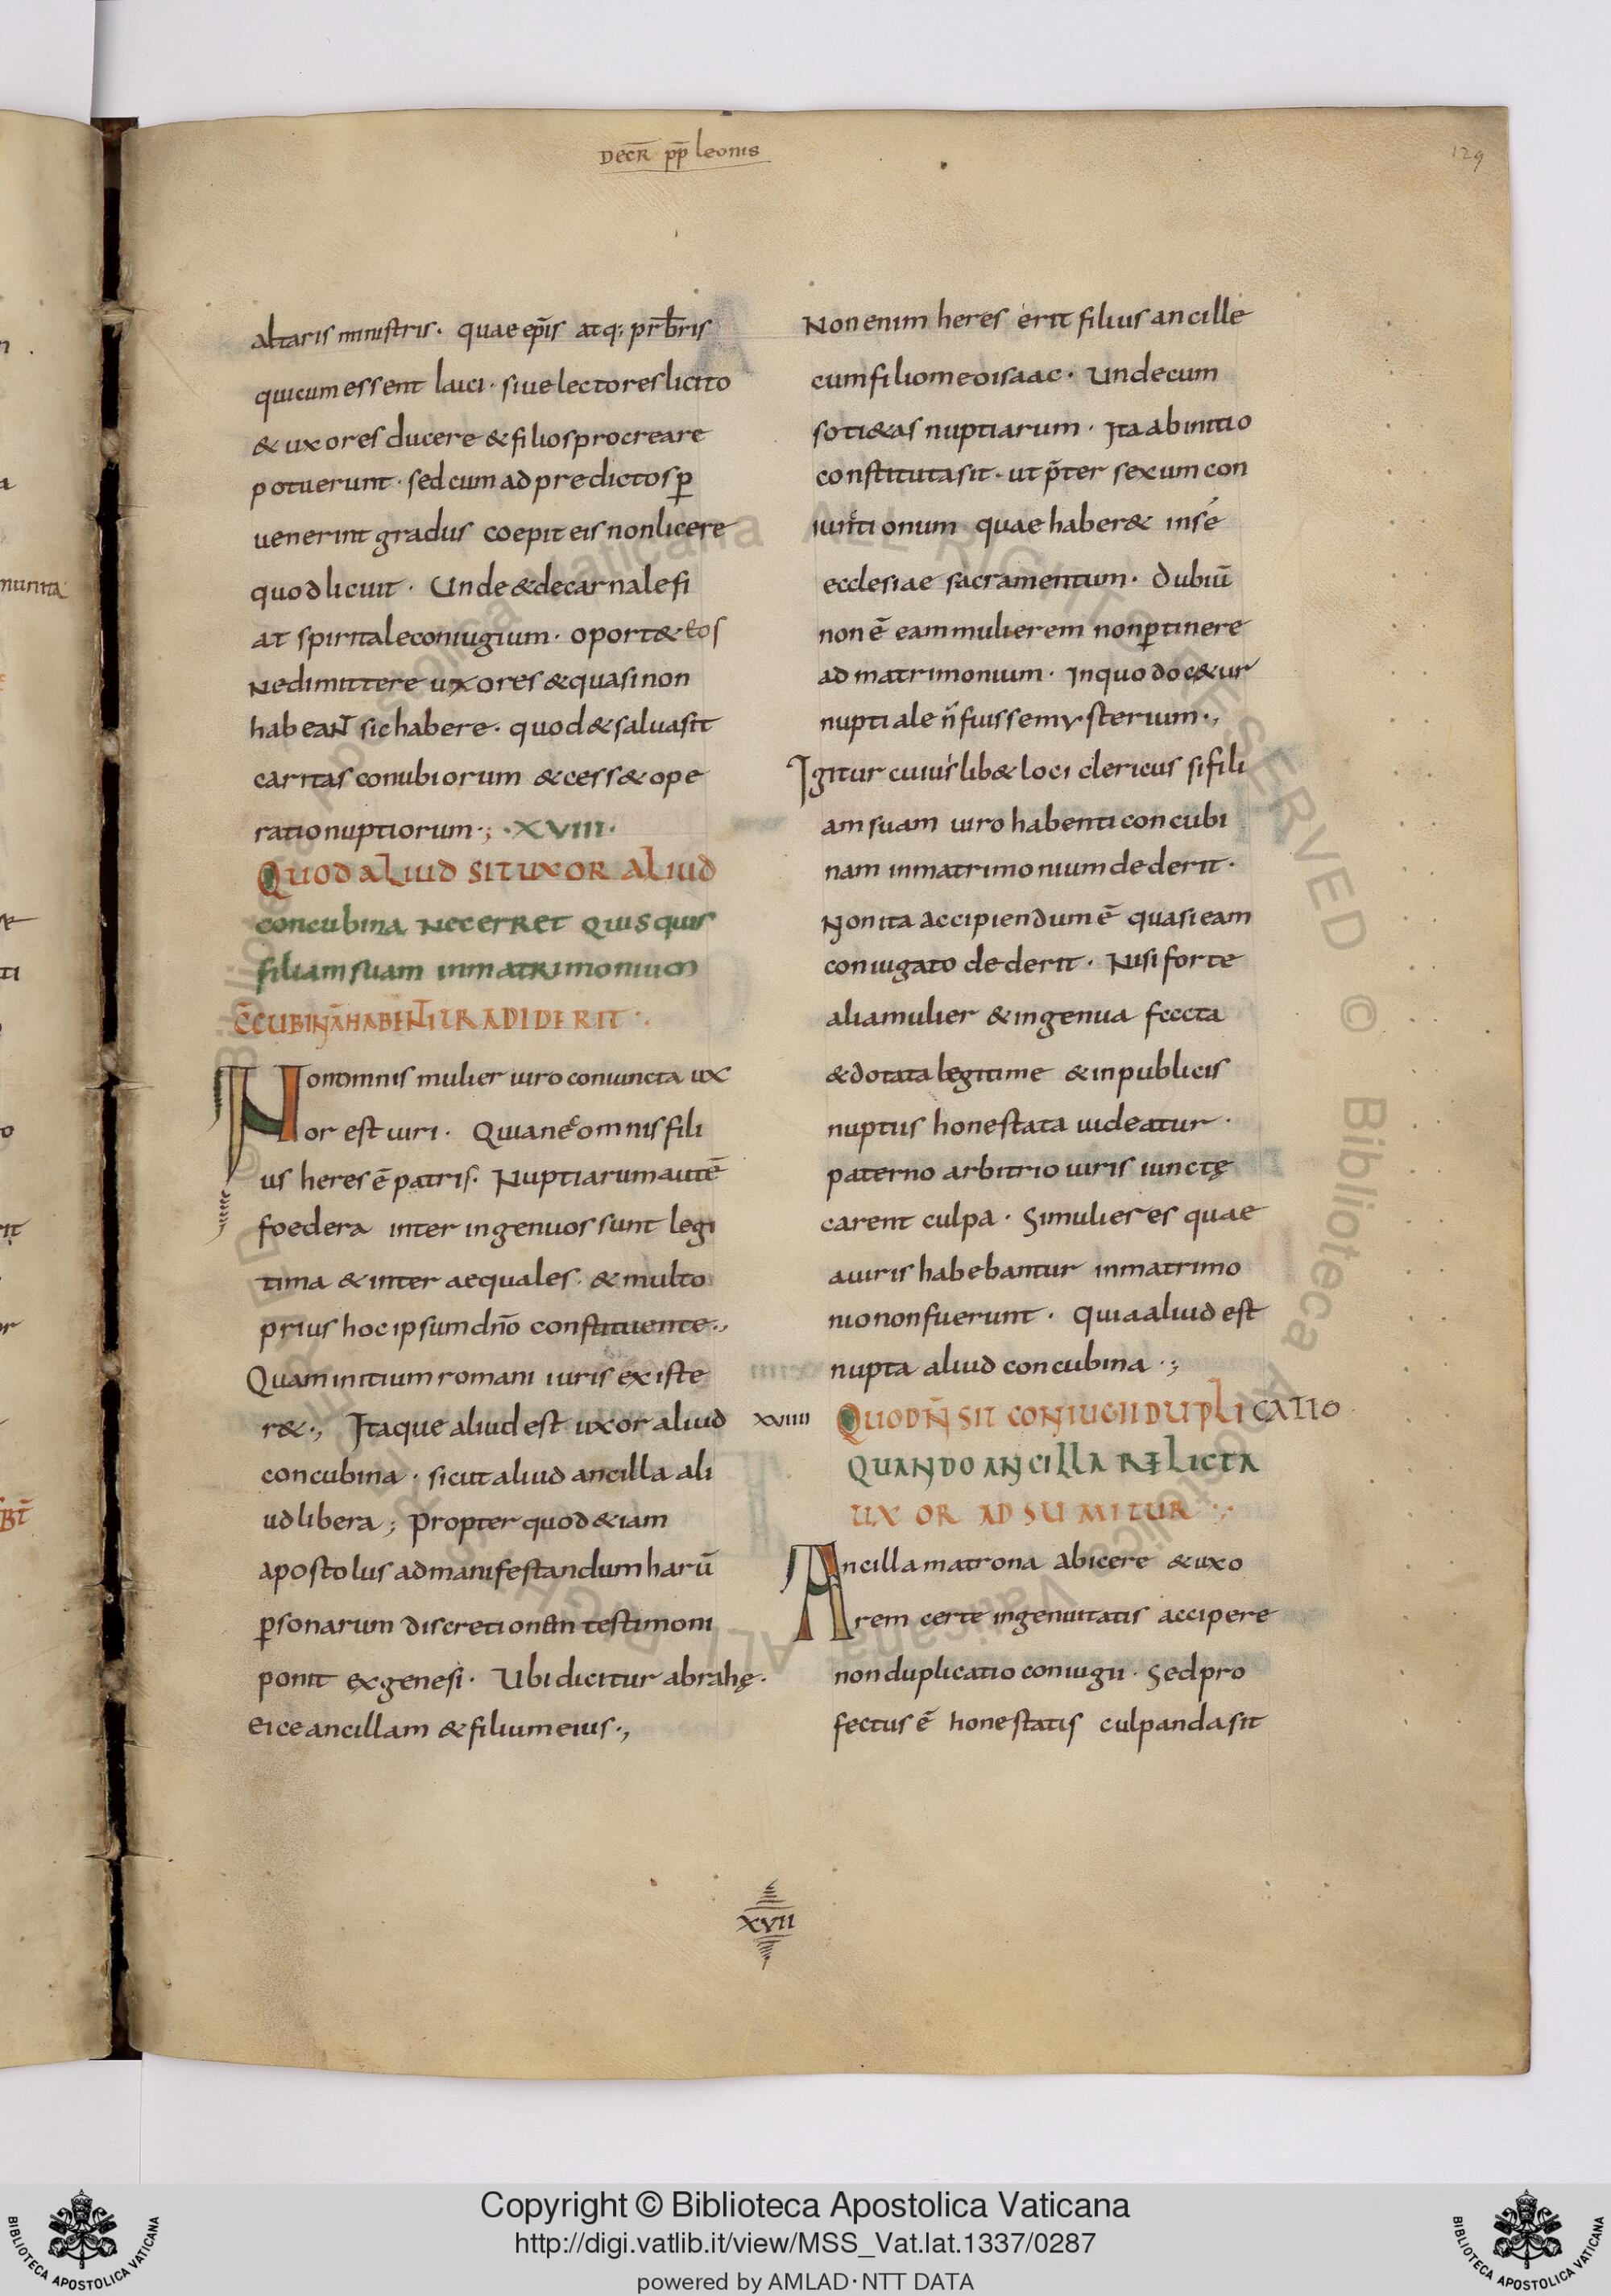 DECR̄ pp̄ leonis
129
altaris ministris. quae ep̄is atq; prb̄ris
qui cum essent laici. siue lectores licito
& uxores ducere & filios procreare
potuerunt. sed cum ad predictos ꝑ
uenerint gradus coepit eis non licere
quod licuit. Unde & de carnale fi
at spiritale coniugium. oport& eos
Nec dimittere uxores & quasi non
habeant sic habere. quod & salua sit
caritas conubiorum & cess& ope
ratio nuptiorum.; .XVIII.
QUOD ALIUD SIT UXOR ALIUD
concubina NecerRet Quisquis
filiam suam in matRimonium
C̄CUBINĀ HABENTI TRADIDERIT.
Non omnis mulier uiro coniuncta ux
or est uiri. Quia nec omnis fili
us heres ē patris. Nuptiarum autē
foedera inter ingenuos sunt legi
tima & inter aequales. & multo
prius hoc ipsum dn̄o constituente.,
Quam initium romani iuris existe
r&., Itaque aliud est uxor aliud
concubina. sicut aliud ancilla ali
ud libera; Propter quod & iam
apostolus ad manifestandum harū
ꝑsonarum discretionem testimoni
ponit ex genesi. Ubi dicitur abrahę.
Eice ancillam & filium eius.,
Non enim heres erit filius ancille
cum filio meo isaac. Unde cum
soti&as nuptiarum. Ita ab initio
constituta sit. ut p̄ter sexum con
iunctionum quae haber& in sé
ecclesiae sacramentum. dubiū
non ē eam mulierem non ꝑtinere
ad matrimonium. In quo doc&ur
nuptiale n̄ fuisse mysterium.,
Igitur cuiuslib& loci clericus si fili
am suam uiro habenti concubi
nam in matrimonium dederit.
Non ita accipiendum ē quasi eam
coniugato dederit. Nisi forte
alia mulier & ingenua feccta
& dotata legitime & in publicis
nuptiis honestata uideatur.
paterno arbitrio uiris iunctę
carent culpa. Si mulieres quae
a uiris habebantur in matrimo
nio non fuerunt. Quia aliud est
nupta aliud concubina.;
XVIIII QUOD N̄ SIT CONIUGII DUPLICATIO
QUANDO ANCILLA RELICTA
UXOR ADSUMITUR.,
Ancilla matrona abicere & uxo
rem certe ingenuitatis accipere
non duplicatio coniugii. Sed pro
fectus ē honestatis culpanda sit
XVII
Copyright © Biblioteca Apostolica Vaticana
http://digi.vatlib.it/view/MSS_Vat.lat.1337/0287
powered by AMLAD·NTT DATA
BIBLIOTECA APOSTOLICA VATICANA
BIBLIOTECA APOSTOLICA VATICANA